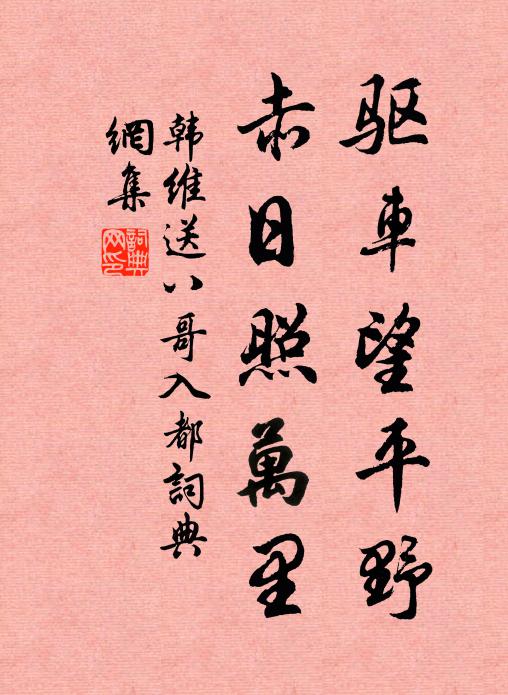 驱車望平野
赤日照萬里
韩维送八哥入都詞典
網集
詞典
网印